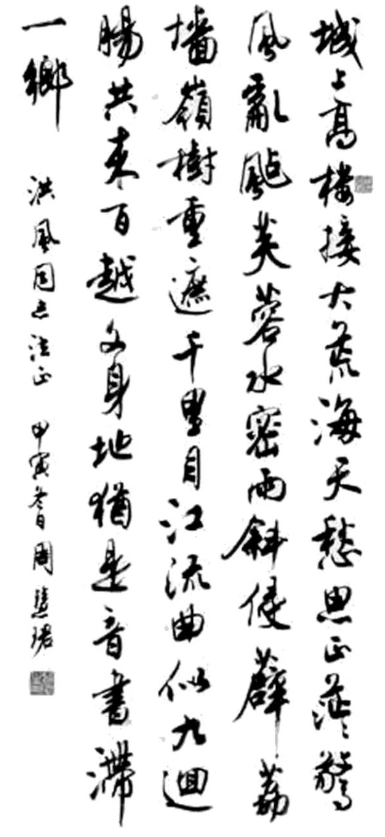 城上高樓接大荒海天愁思正茫驚
風亂颭芙蓉水密雨斜侵薜荔
墻嶺樹重遮千里目江流曲似九迴
腸共來百越文身地猶是音書滯
一鄉
洪風同志法正 甲寅冬日周慧珺